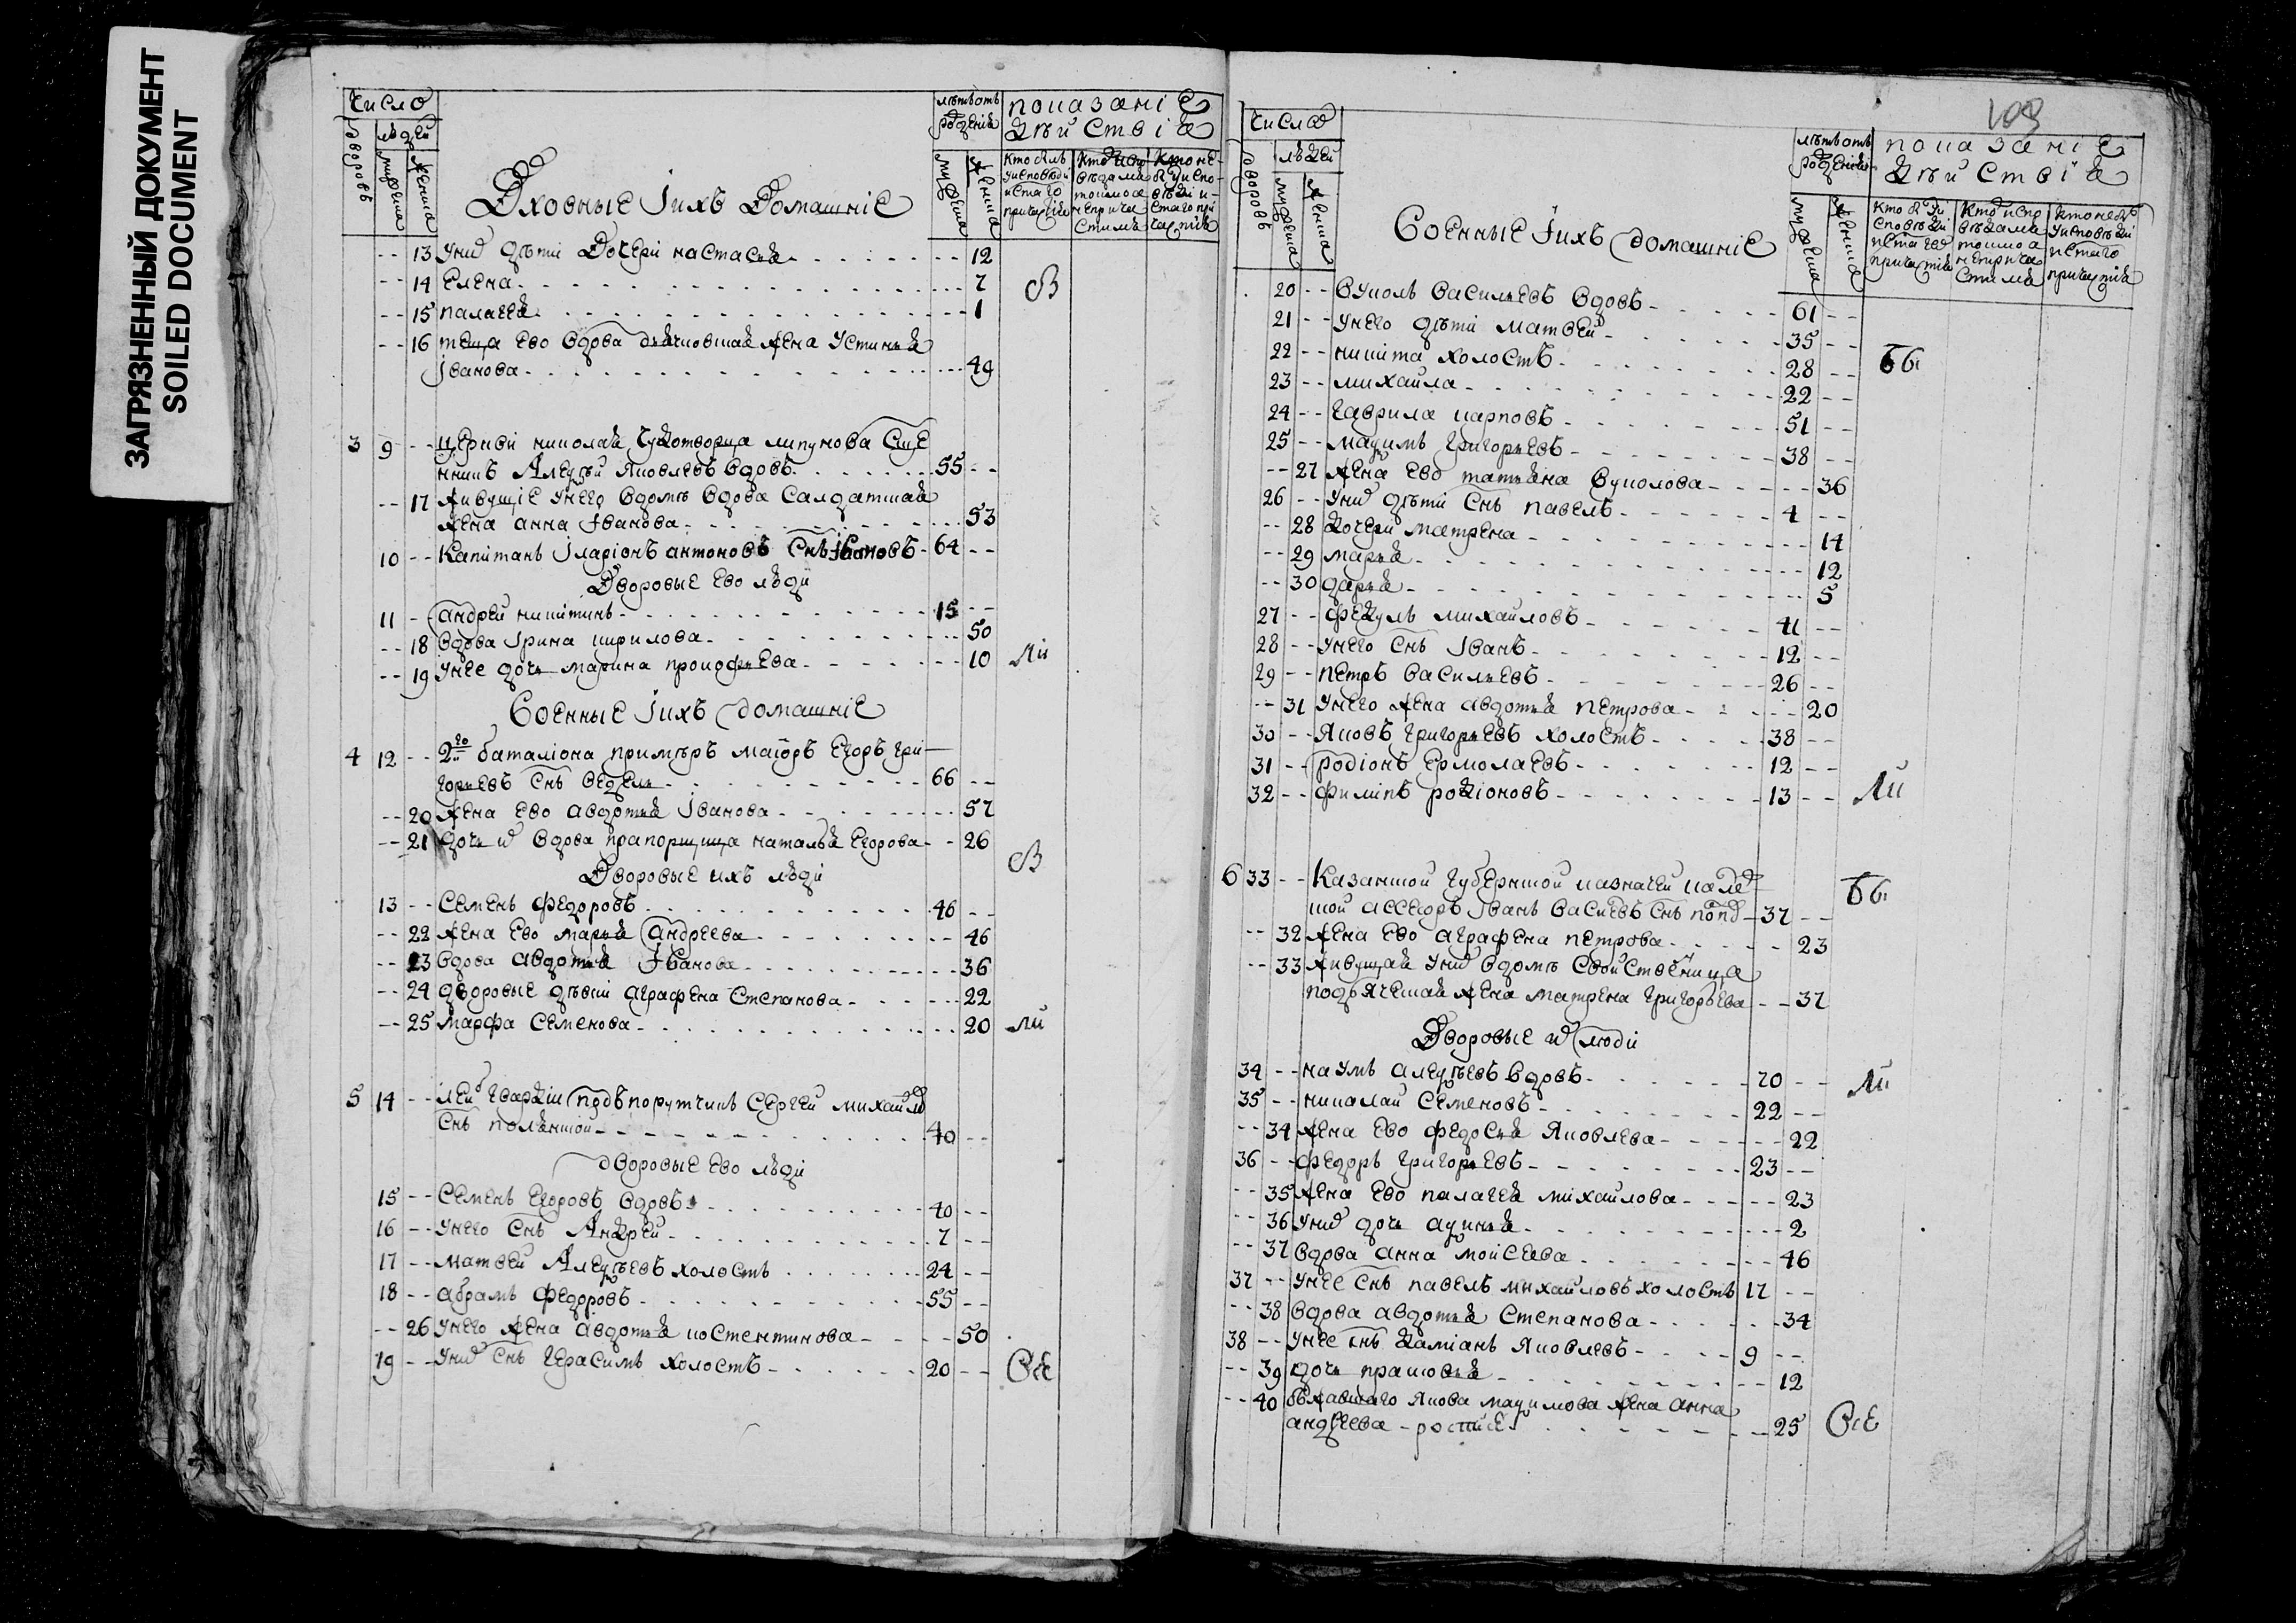 ЗАГРЯЗНЕННЫЙ ДОКУМЕНТ
SOILED DOCUMENT
число
дворовъ
людей
мужеска
женска
Дховные іихъ Домашніе
лѣтъ отъ рожденія
мужеска
женска
показаніе
дѣйствія
кто былъ у исповѣди и стаго причастія
кто исповѣдался токмо а не причастился
кто не былъ у исповѣди и стаго причастія
-- 13 У нихъ дѣти дочери настасья 12
-- 14 Елена 7
-- 15 палагея 1
-- 16 теща ево вдова дьячковская жена Устинья
Іванова 49
3 9 -- церкви николая чудотворца ляпунова Сще
нникъ Алеѯѣй Яковлевъ вдовъ 55 --
-- 17 живущіе у него вдомѣ вдова Салдатская
жена анна Іванова 53
10 -- Капитанъ Іларіонъ антоновъ Снъ Івановъ 64 --
Дворовые ево люди
11 -- андрей никитинъ 15 --
-- 18 вдова Ірина кирилова 50
-- 19 у нее дочь марина прокофьева 10
Военные Іихъ домашніе
4 12 -- 2го баталіона примѣръ маіоръ Егоръ гри
горьевъ Снъ ведель 66 --
-- 20 жена ево авдотья Іванова 57
-- 21 дочь их вдова прапорщица наталья Егорова 26
Дворовые ихъ люди
13 -- Семенъ федоровъ 46 --
-- 22 жена ево марья андреева 46
-- 23 вдова авдотья Іванова 36
-- 24 дворовые дѣвки аграфена Степанова 22
-- 25 марфа Семенова 20
5 14 -- лей гвардіи подъпорутчикъ Сергей михайло
Снъ полянской 40 --
дворовые ево люди
15 -- Семенъ Егоровъ вдовъ 40 --
16 -- у него Снъ Андрей 7 --
17 -- матвей Алеѯѣевъ холостъ 24 --
18 -- абрамъ федоровъ 55 --
-- 26 у него жена авдотья костентинова 50
19 -- у них Снъ герасимъ холостъ 20 --
Всѣ
109
число
дворовъ
людей
мужеска
женска
Военные Іихъ домашніе
лѣтъ отъ рожденія
мужеска
женска
показаніе
дѣйствія
кто былъ у исповѣди и стаго причастія
кто исповѣдался токмо а не причастился
кто не былъ у исповѣди и стаго причастія
20 -- вуколъ васильевъ вдовъ 61 --
21 -- у него дѣти матвей 35 --
22 -- никита холостъ 28 --
23 -- михайла 22 --
24 -- гаврила карповъ 51 --
25 -- маѯимъ григорьевъ 38 --
-- 27 жена ево татьяна вуколова 36
26 -- у них дѣти Снъ павелъ 4 --
-- 28 дочери матрена 14
-- 29 марья 12
-- 30 дарья 5
27 -- федулъ михайловъ 41 --
28 -- у него Снъ Іванъ 12 --
29 -- петръ васильевъ 26 --
-- 31 у него жена авдотья петрова 20
30 -- Яковъ григорьевъ холостъ 38 --
31 -- родіонъ Ермолаевъ 12 --
32 -- филипъ родіоновъ 13 --
6 33 -- Казанской губернской казначей колле
ской ассесоръ Іванъ васиевъ Снъ попо 37 --
-- 32 жена ево аграфена петрова 23
-- 33 живущая у них вдомѣ Свойственница
подьяческая жена матрена григорьева 37
Дворовые их люди
34 -- наумъ алеѯѣевъ вдовъ 70 --
35 -- николай Семеновъ 22 --
-- 34 жена ево федосья Яковлева 22
36 -- федоръ григорьевъ 23 --
-- 35 жена ево палагея михайлова 23
-- 36 у них дочь аѯинья 2
-- 37 вдова анна мойсеева 46
37 -- у нее Снъ павелъ михайловъ холостъ 17 --
-- 38 вдова авдотья Степанова 34
38 -- у нее Снъ даміанъ Яковлевъ 9 --
-- 39 дочь прасковья 12
-- 40 бѣжавшаго Якова маѯимова жена анна
андреева 25
Всѣ